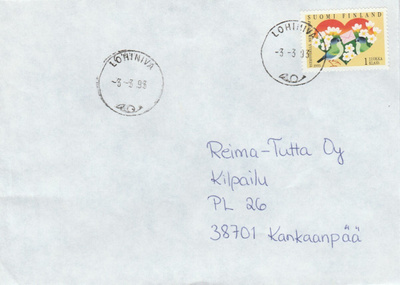 LOHINIVA
-3-3.93
LOHINIVA
-3-3.93
SUOMI FINLAND
1 LUOKKA
KLASS
Reima-Tutta Oy
Kilpailu
PL 26
38701 Kankaanpää